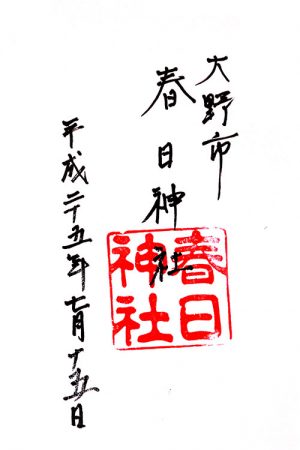 大野市
春日神社
春日神社
平成二十五年七月十五日